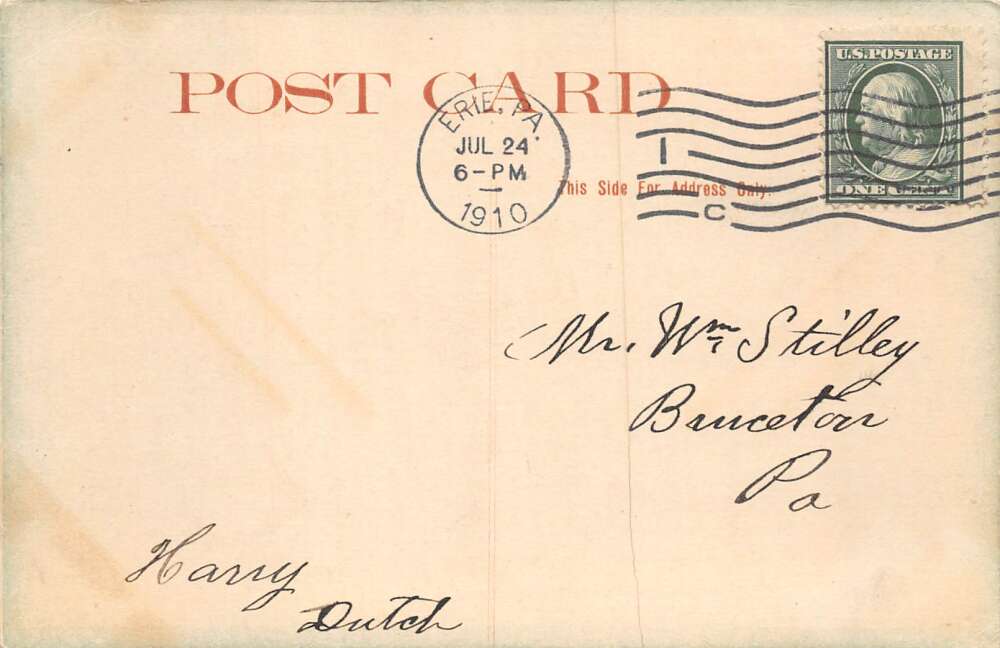 POST CARD
U.S. POSTAGE
ERIE, PA.
JUL 24
6-PM
1910
1
C
This Side For Address Only.
ONE
Mr. Wm Stilley
Bruceton
Pa
Harry
Dutch